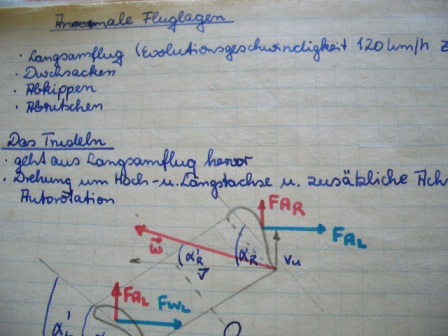 Anomale Fluglagen
· Langsamflug (Evolutionsgeschwindigkeit 120 km/h
· Durchsacken
· Abkippen
· Abrutschen
Das Trudeln
· geht aus Langsamflug hervor
· Drehung um Hoch- u. Längsachse u. zusätzliche
Autorotation
FAR
FAL
w
α'R
αR
v
vu
FAL
FWL